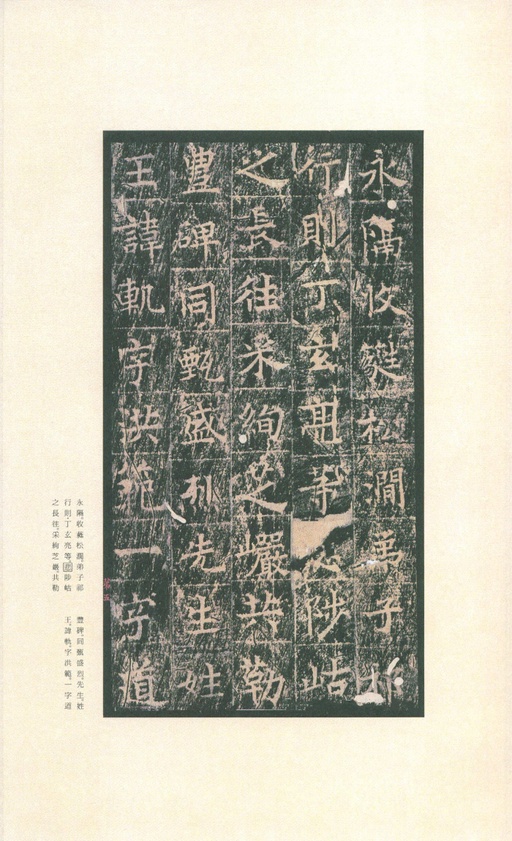 永隔收蘱松澗弟子祁
行則丁玄亮等陟岵
之長往米絢芝巖共勒
豐碑同甄盛烈先生姓
王諱軌字洪範一字道
永隔收蘱松澗弟子祁
行則丁玄亮等陟岵
之長往米絢芝巖共勒
豐碑同甄盛烈先生姓
王諱軌字洪範一字道